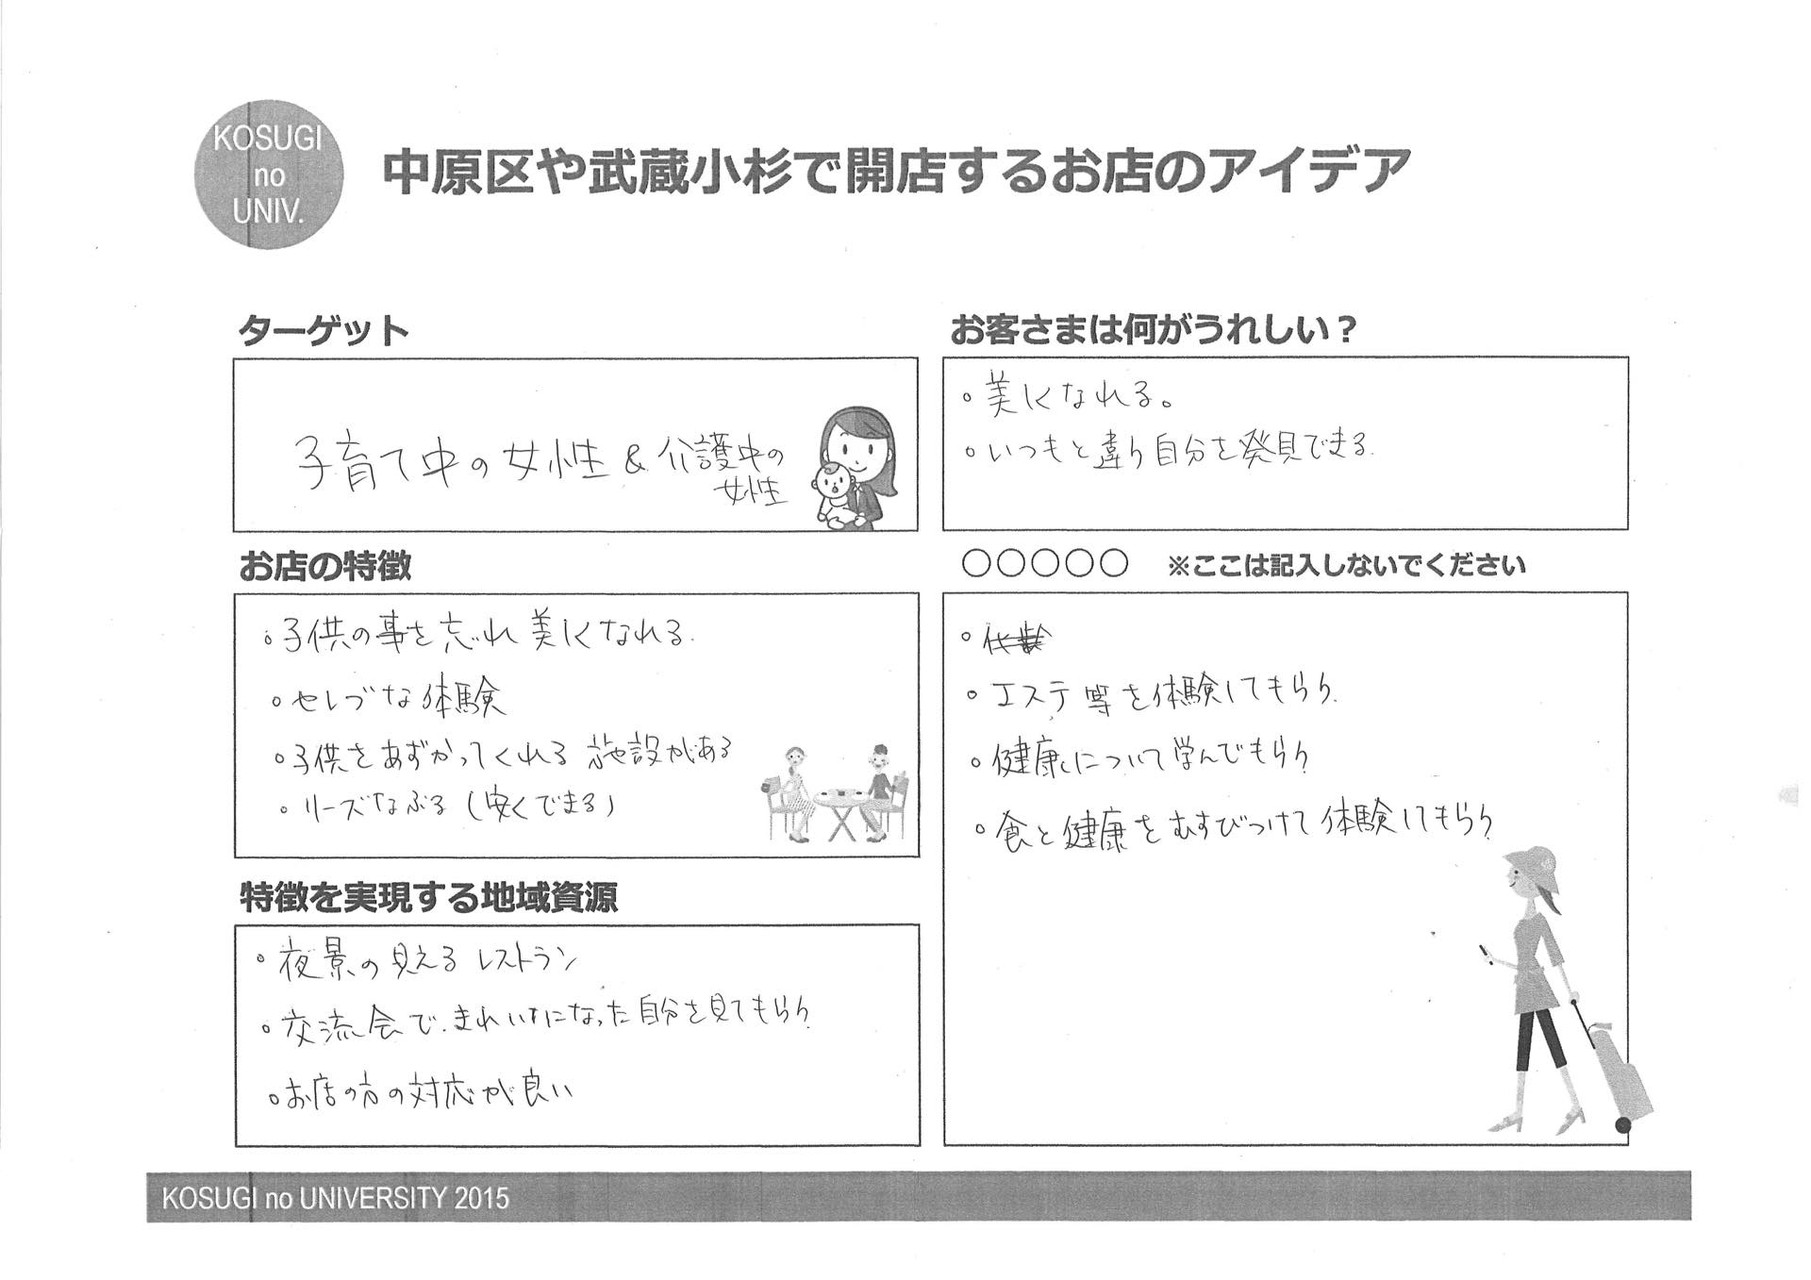 KOSUGI
no
UNIV.
中原区や武蔵小杉で開店するお店のアイデア
ターゲット
子育て中の女性 & 介護中の
女性
お客さまは何がうれしい？
・美しくなれる。
・いつもと違う自分を発見できる.
お店の特徴
・子供の事を忘れ 美しくなれる.
・セレブな体験
・子供をあずかってくれる 施設がある
・リーズなぶる (安くできる)
○○○○○ ※ここは記入しないでください
・エステ等を体験してもらう.
・健康について学んでもらう
・食と健康をむすびつけて体験してもらう
特徴を実現する地域資源
・夜景の見える レストラン
・交流会で.きれいになった自分を見てもらう
・お店の方の対応が良い
KOSUGI no UNIVERSITY 2015